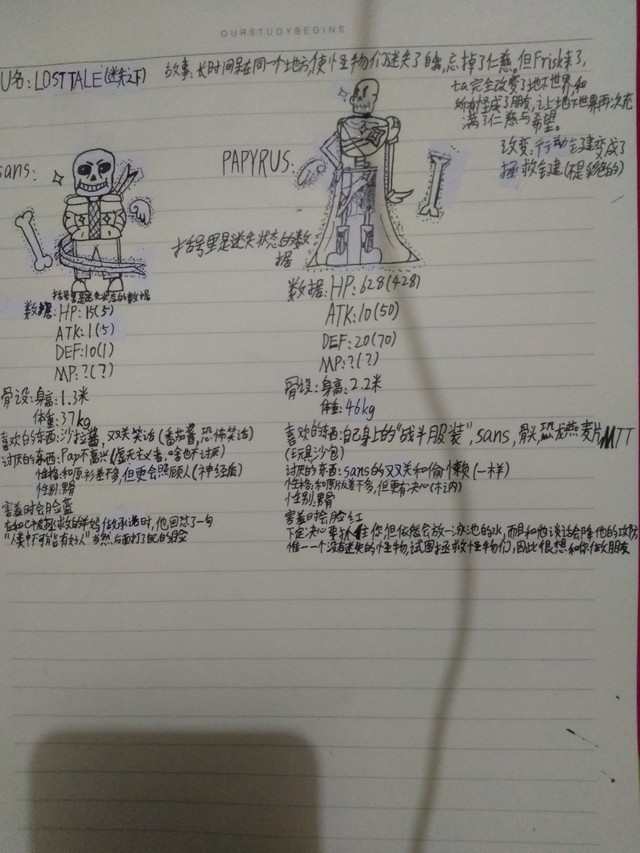 OURSTUDYBEGINS
U名：LOSTTALE（迷失之下）
故事：长时间呆在同一个地方，使怪物们迷失了自我，忘掉了仁慈。但Frisk来了，
ta完全改变了地下世界和
所有怪成了朋友，让地下世界再次充
满了仁慈与希望。
改变：行动会建变成了
拯救会建（不是彩色的）
sans：
PAPYRUS：
括号里是迷失状态的数据
数据：HP：15(5)
ATK：1(5)
DEF：10(1)
MP：?(?)
骨设：身高：1.3米
体重：37kg
喜欢的东西：沙拉酱，双关笑话（番茄酱，恐怖笑话）
讨厌的东西：Pap不高兴（虚无主义者，啥也不讨厌）
性格：和原衫差不多，但更会照顾人（神经质）
性别：男骨
害羞时会脸蓝
"人类中不可能有好人"当然，后面打了自己的脸
括号里是迷失状态的数
据
数据：HP：628(428)
ATK：10(50)
DEF：20(70)
MP：?(?)
骨设：身高：2.2米
体重：46kg
喜欢的东西：自己身上的"战斗服装"，sans，骨头，恐龙燕麦片，MTT
（玩具沙包）
讨厌的东西：sans的双关和偷懒（一样）
性格：和原版差不多，但更有决心（木讷）
性别：男骨
害羞时会脸红
下定决心要抓住你，但依然会放
惟一一个没有迷失的怪物，试图拯救怪物们，因此很想和你做朋友